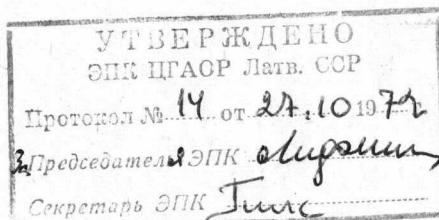 УТВЕРЖДЕНО
ЭПК ЦГАОР Латв. ССР
Протокол № 14 от 27.10 1972
Зам Председателя ЭПК
Секретарь ЭПК